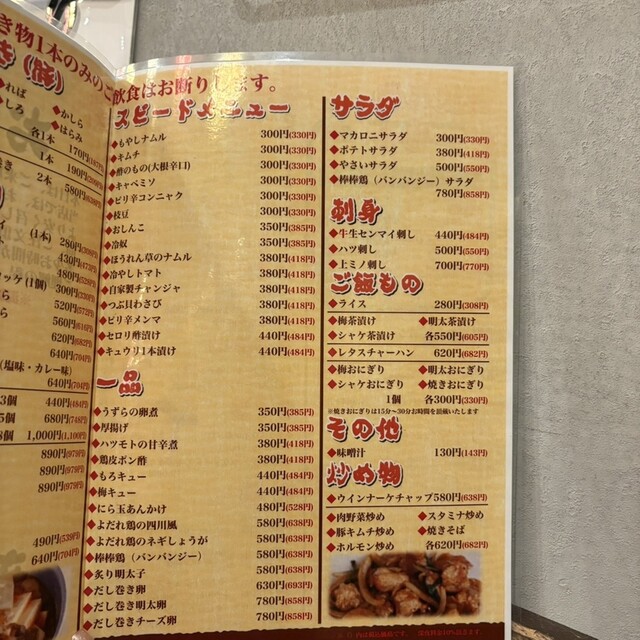 き物1本のみのご飲食はお断りします。
き(豚)
れば ◆かしら
しろ ◆はらみ
各1本 170円
1本 190円
やき 2本 580円
(1本) 280円(308円)
430円(473円)
480円(528円)
ロッケ(1個) 300円(330円)
520円(572円)
560円(616円)
640円(704円)
(塩味・カレー味)
640円(704円)
3個 440円(484円)
5個 680円(748円)
8個 1,000円(1,100円)
890円(979円)
890円(979円)
890円(979円)
490円(539円)
640円(704円)
スピードメニュー
◆もやしナムル 300円(330円)
◆キムチ 300円(330円)
◆酢のもの(大根辛口) 300円(330円)
◆キャベミソ 300円(330円)
◆ピリ辛コンニャク 300円(330円)
◆枝豆 300円(330円)
◆おしんこ 350円(385円)
◆冷奴 350円(385円)
◆ほうれん草のナムル 380円(418円)
◆冷やしトマト 380円(418円)
◆自家製チャンジャ 380円(418円)
◆つぶ貝わさび 380円(418円)
◆ピリ辛メンマ 380円(418円)
◆セロリ酢漬け 440円(484円)
◆キュウリ1本漬け 440円(484円)
一品
◆うずらの卵煮 350円(385円)
◆厚揚げ 350円(385円)
◆ハツモトの甘辛煮 380円(418円)
◆鶏皮ポン酢 380円(418円)
◆もろキュー 440円(484円)
◆梅キュー 440円(484円)
◆にら玉あんかけ 480円(528円)
◆よだれ鶏の四川風 580円(638円)
◆よだれ鶏のネギしょうが 580円(638円)
◆棒棒鶏(バンバンジー) 580円(638円)
◆炙り明太子 580円(638円)
◆だし巻き卵 630円(693円)
◆だし巻き明太卵 780円(858円)
◆だし巻きチーズ卵 780円(858円)
サラダ
◆マカロニサラダ 300円(330円)
◆ポテトサラダ 380円(418円)
◆やさいサラダ 500円(550円)
◆棒棒鶏(バンバンジー)サラダ
780円(858円)
刺身
◆牛生センマイ刺し 440円(484円)
◆ハツ刺し 500円(550円)
◆上ミノ刺し 700円(770円)
ご飯もの
◆ライス 280円(308円)
◆梅茶漬け ◆明太茶漬け
◆シャケ茶漬け 各550円(605円)
◆レタスチャーハン 620円(682円)
◆梅おにぎり ◆明太おにぎり
◆シャケおにぎり ◆焼きおにぎり
1個 各300円(330円)
※焼きおにぎりは15分～30分お時間を頂戴いたします
その他
◆味噌汁 130円(143円)
炒め物
◆ウインナーケチャップ 580円(638円)
◆肉野菜炒め ◆スタミナ炒め
◆豚キムチ炒め ◆焼きそば
◆ホルモン炒め 各620円(682円)